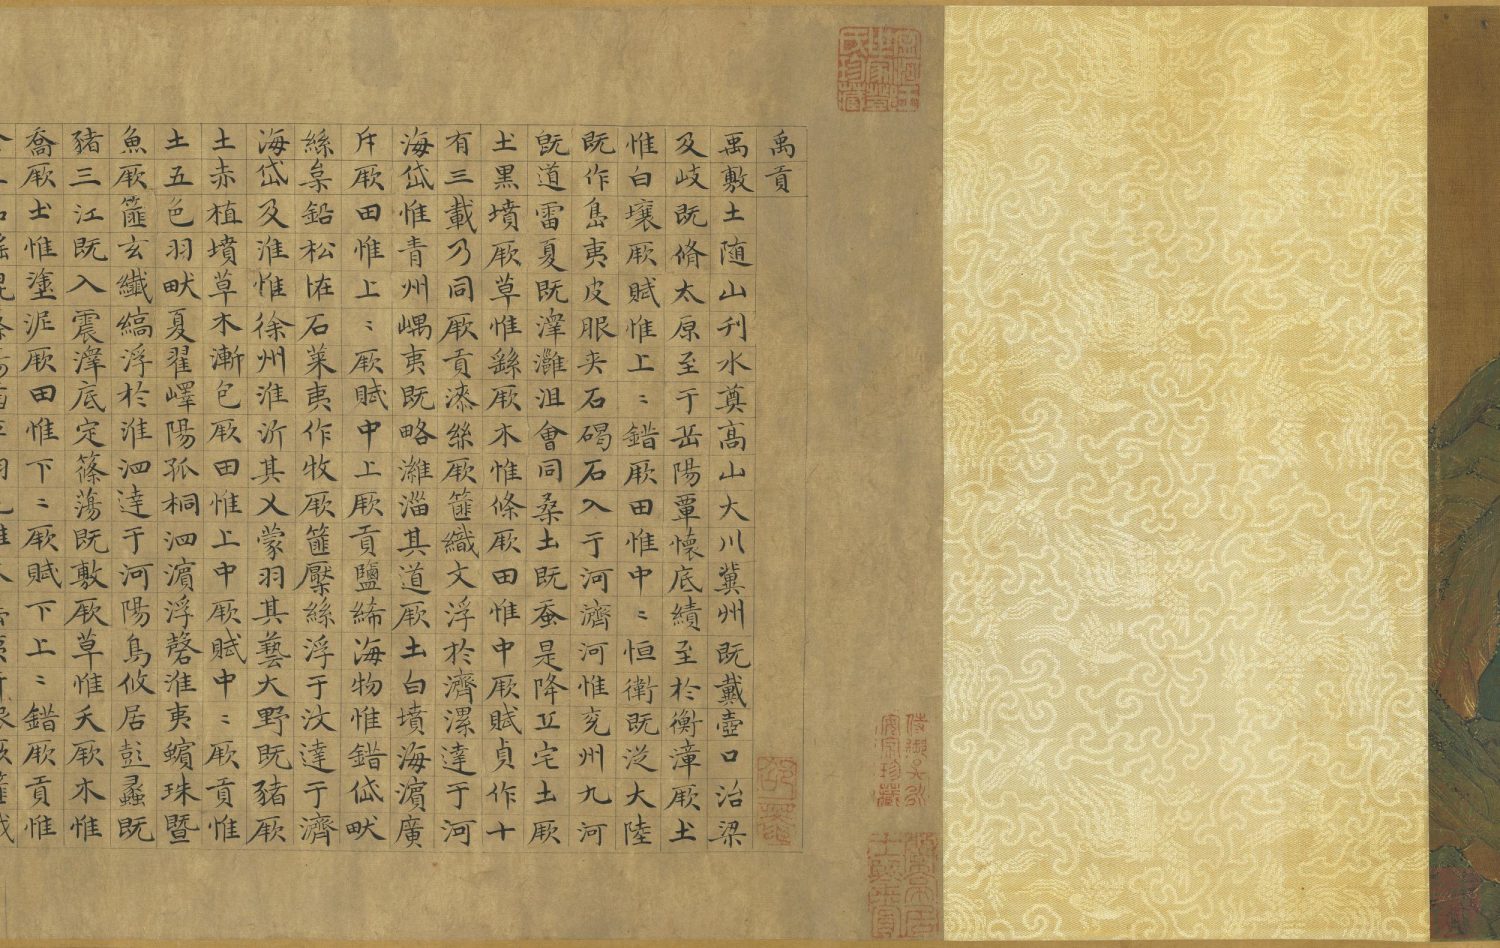 禹貢
禹敷土随山刋水奠高山大川冀州既戴壺口治梁
及岐既脩太原至于岳陽覃懷底績至於衡漳厥土
惟白壤厥賦惟上〻錯厥田惟中〻恒衛既從大陸
既作島夷皮服夾石碣石入于河濟河惟兖州九河
既道雷夏既澤灉沮會同桑土既蚕是降丘宅土厥
土黑墳厥草惟繇厥木惟條厥田惟中厥賦貞作十
有三載乃同厥貢漆絲厥篚織文浮於濟漯達于河
海岱惟青州嵎夷既略濰淄其道厥土白墳海濵廣
斥厥田惟上〻厥賦中上厥貢鹽絺海物惟錯岱畎
絲枲鉛松恠石莱夷作牧厥篚檿絲浮于汶達于濟
海岱及淮惟徐州淮沂其乂蒙羽其藝大野既豬厥
土赤植墳草木漸包厥田惟上中厥賦中〻厥貢惟
土五色羽畎夏翟嶧陽孤桐泗濵浮磬淮夷蠙珠暨
魚厥篚玄纎縞浮於淮泗達于河陽鳥攸居彭蠡既
豬三江既入震澤底定篠蕩既敷厥草惟夭厥木惟
喬厥土惟塗泥厥田惟下〻厥賦下上〻錯厥貢惟